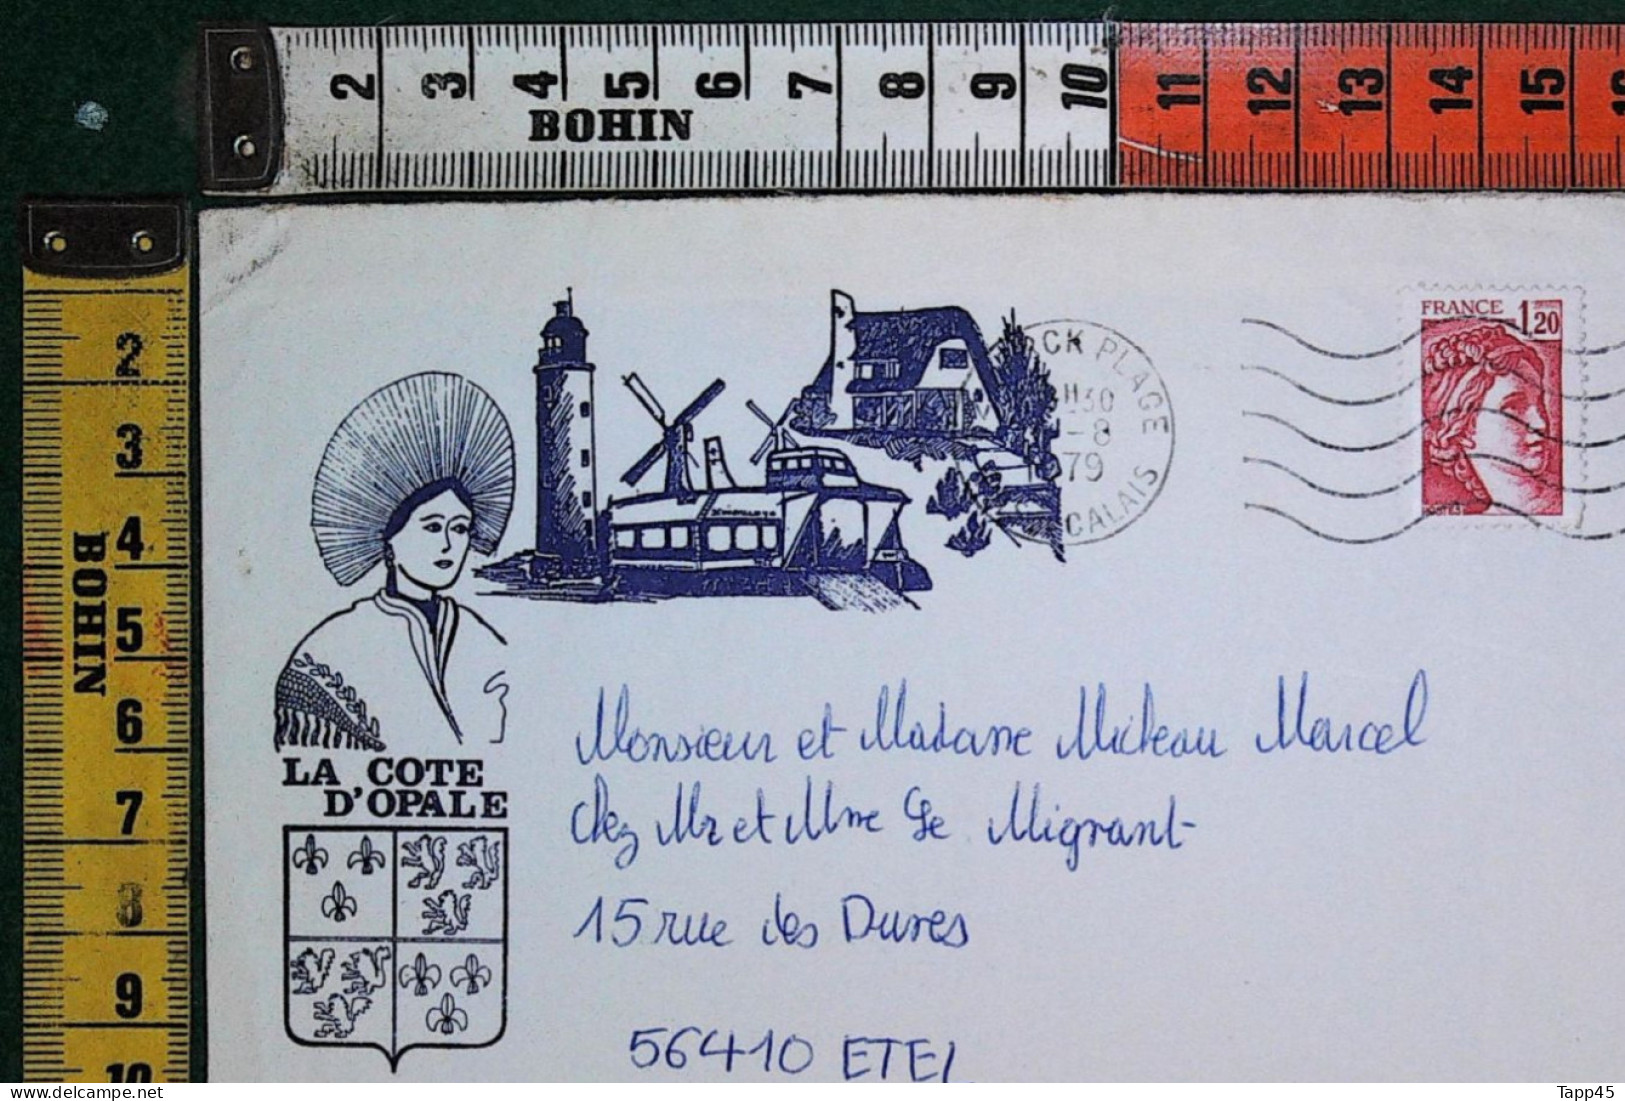 2 3 4 5 6 7 8 9 10 11 12 13 14 15
BOHIN
2
3
4
5
6
7
8
9
10
BOHIN
FRANCE 1,20
CK PLAGE
H30
-8
1979
CALAIS
LA COTE
D'OPALE
Monsieur et Madame Micheau Marcel
chez Mr et Mme Le Migrant
15 rue des Dunes
56410 ETEL
Tapp45